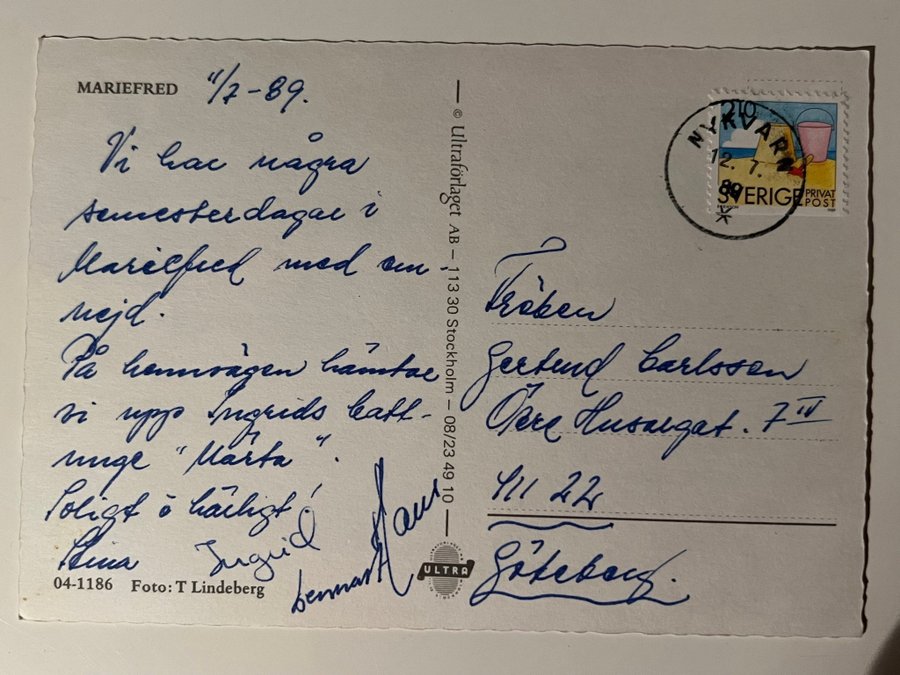 MARIEFRED 11/7-89.
Vi har några
semesterdagar i
Mariefred med om-
nejd.
På hemvägen hämtar
vi upp Ingrids katt-
unge "Märta".
Soligt o härligt!
Stina Ingrid Lennart Hans
04-1186 Foto: T Lindeberg
© Ultraförlaget AB – 113 30 Stockholm – 08/23 49 10
ULTRA
210
NYKVARN
12. 7.
89
SVERIGE PRIVAT POST
Fröken
Gertrud Carlsson
Övre Husargat. 7 IV
411 22
Göteborg.